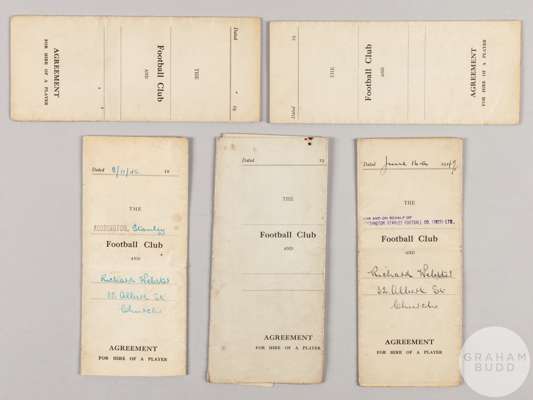 Dated 19
THE
Football Club
AND
AGREEMENT
FOR HIRE OF A PLAYER
Dated 19
THE
Football Club
AND
AGREEMENT
FOR HIRE OF A PLAYER
Dated 19
THE
ACCRINGTON Stanley
Football Club
AND
Richard Webster
22 Albert St
Church
AGREEMENT
FOR HIRE OF A PLAYER
Dated 19
THE
Football Club
AND
AGREEMENT
FOR HIRE OF A PLAYER
Dated June 194
THE
FOR AND ON BEHALF OF
ACCRINGTON STANLEY FOOTBALL CO. LTD.
Football Club
AND
Richard Webster
22 Albert St
Church
AGREEMENT
FOR HIRE OF A PLAYER
GRAHAM
BUDD